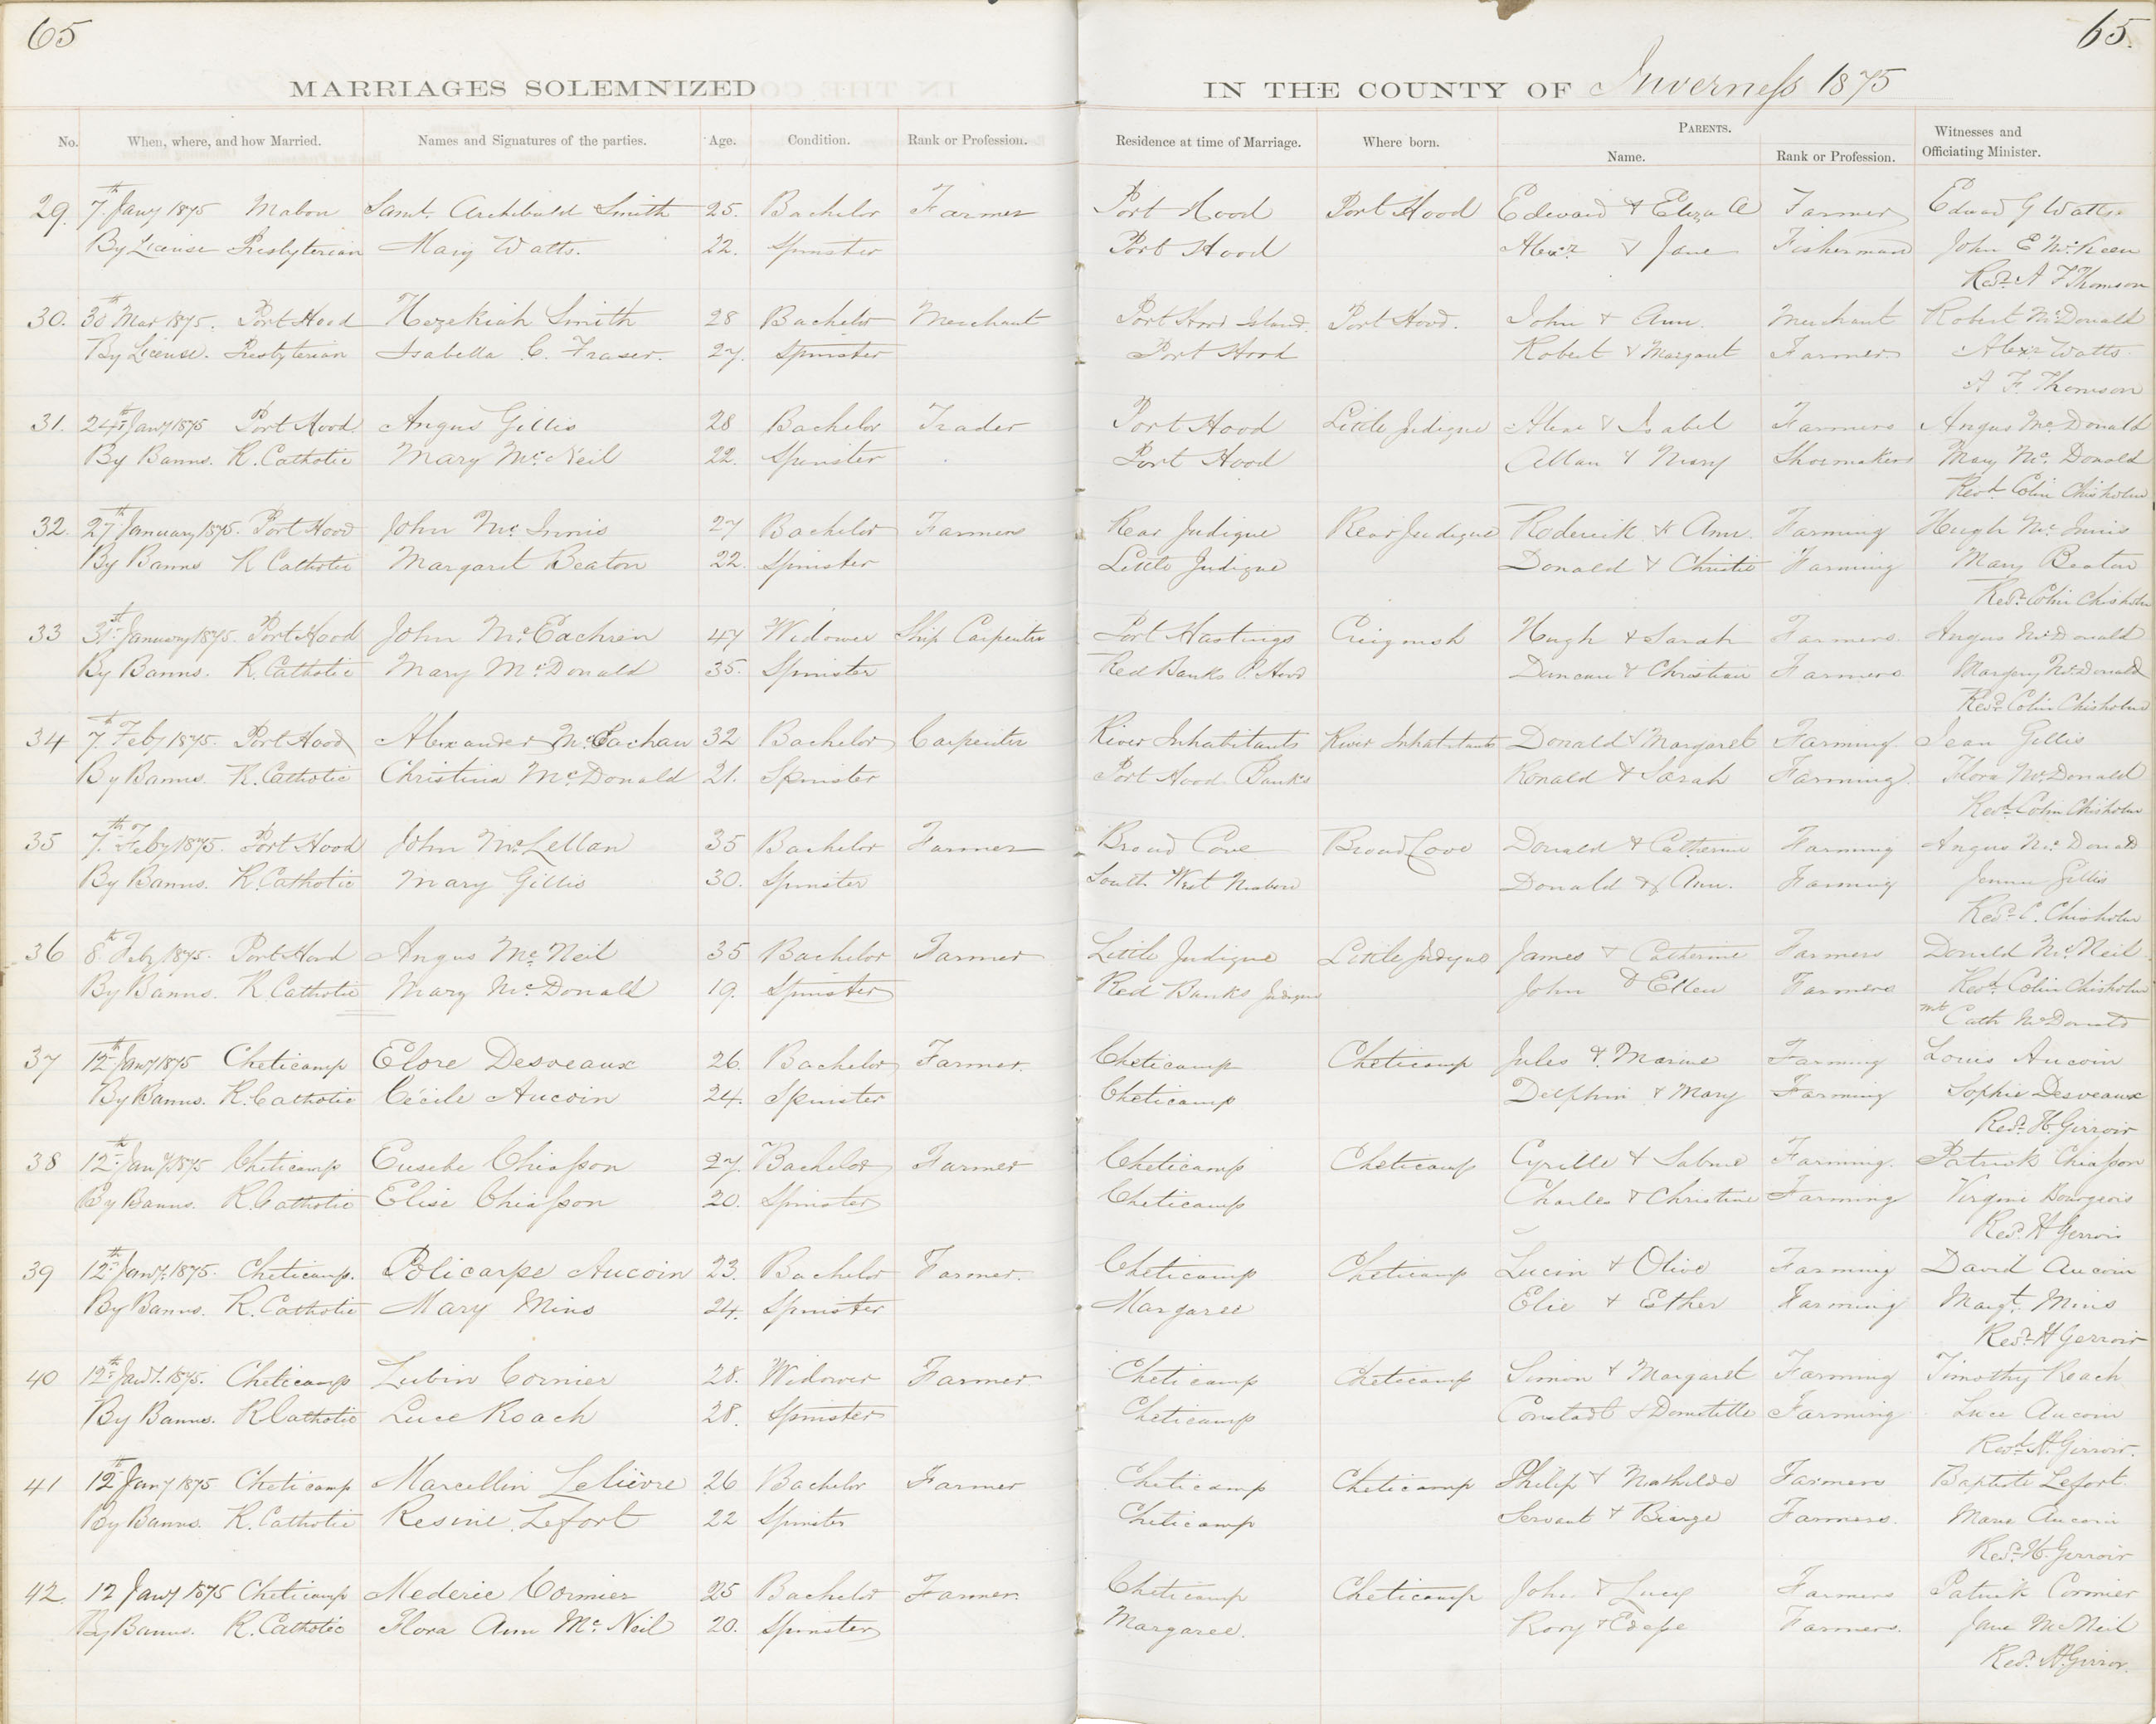 65
65.
MARRIAGES SOLEMNIZED IN THE COUNTY OF Inverness 1875
No. When, where, and how Married. Names and Signatures of the parties. Age. Condition. Rank or Profession. Residence at time of Marriage. Where born. PARENTS. Name. Rank or Profession. Witnesses and Officiating Minister.
29. 7th Jany 1875 Mabou Saml. Archibald Smith 25. Bachelor Farmer Port Hood Port Hood Edward & Eliza A Farmer Edward G Watts
By License Presbyterian Mary Watts. 22. Spinster Port Hood Alexr & Jane Fisherman John E McKeen
Revd A F Thomson
30. 30th Mar 1875. Port Hood Hezekiah Smith 28 Bachelor Merchant Port Hood Island. Port Hood. John & Ann. Merchant Robert McDonald
By License. Presbyterian Isabella C. Fraser. 27. Spinster Port Hood Robert & Margaret Farmer Alexr Watts.
A F. Thomson
31. 24th Jany 1875 Port Hood. Angus Gillis 28 Bachelor Trader Port Hood Little Judique Alex & Isabel Farmers Angus McDonald
By Banns. R. Catholic Mary McNeil 22. Spinster Port Hood Allan & Mary Shoemakers Mary McDonald
Revd. Colin Chisholm
32. 27th January 1875. Port Hood John McInnis 27 Bachelor Farmer Rear Judique Rear Judique Roderick & Ann. Farming Hugh McInnis
By Banns R Catholic Margaret Beaton 22. Spinster Little Judique Donald & Christie Farming Mary Beaton
Revd. Colin Chisholm
33 31st January 1875. Port Hood John McEachren 47 Widower Ship Carpenter Port Hastings Creignish Hugh & Sarah Farmers. Angus McDonald
By Banns. R. Catholic Mary McDonald 35. Spinster Red Banks P. Hood Duncan & Christian Farmers. Margery McDonald
Revd. Colin Chisholm
34 7th Feby 1875. Port Hood Alexander McEachan 32 Bachelor Carpenter River Inhabitants River Inhabitants Donald & Margaret Farming. Jean Gillis
By Banns. R. Catholic Christina McDonald 21. Spinster Port Hood Banks Ronald & Sarah Farming. Flora McDonald
Revd. Colin Chisholm
35 7th Feby 1875. Port Hood John McLellan 35 Bachelor Farmer Broad Cove Broad Cove Donald & Catherine Farming Angus McDonald
By Banns. R. Catholic Mary Gillis 30. Spinster South West Mabou Donald & Ann. Farming Gillis
Revd. C. Chisholm
36 8th Feby 1875. Port Hood Angus McNeil 35 Bachelor Farmer Little Judique Little Judique James & Catherine Farmers Donald McNeil.
By Banns. R. Catholic Mary McDonald 19. Spinster Red Banks Judique John & Ellen Farmers Revd. Colin Chisholm
Cath McDonald
37 12th Jany 1875 Cheticamp Elore Desveaux 26. Bachelor Farmer. Cheticamp Cheticamp Jules & Marine Farming Louis Aucoin
By Banns. R. Catholic Cécile Aucoin 24. Spinster Cheticamp Delphin & Mary Farming Sophie Desveaux
Revd. H. Girroir
38 12th Jany 1875 Cheticamp Eusebe Chiasson 27. Bachelor Farmer Cheticamp Cheticamp Cyrille & Farming. Patrick Chiasson
By Banns. R. Catholic Elise Chiasson 20. Spinster Cheticamp Charles & Christine Farming Virginie Bourgeois
Revd. H Gerroir
39 12th Jany. 1875. Cheticamp. Policarpe Aucoin 23. Bachelor Farmer. Cheticamp Cheticamp Lucin & Olive Farming David Aucoin
By Banns. R. Catholic Mary Mins 24. Spinster Margaree Elie & Esther Farming Margt. Mins
Revd. H Gerroir
40 12th Jany. 1875. Cheticamp Lubin Cormier 28. Widower Farmer Cheticamp Cheticamp Simon & Margaret Farming Timothy Roach
By Banns. R Catholic Luce Roach 28. Spinster Cheticamp & Domitille Farming Luce Aucoin
Revd. H. Girroir.
41 12th Jany 1875 Cheticamp Marcellin Lelièvre 26 Bachelor Farmer Cheticamp Cheticamp Philip & Mathilde Farmers Baptiste Lefort.
By Banns. R. Catholic Resine Lefort 22 Spinster Cheticamp Servant & Farmers. Marie Aucoin
Revd. H. Gerroir
42. 12 Jany 1875 Cheticamp Mederic Cormier 25 Bachelor Farmer. Cheticamp Cheticamp John & Lucy Farmers Patrick Cormier
By Banns. R. Catholic Flora Ann McNeil 20. Spinster Margaree. Rory & Farmers. Jane McNeil
Revd. H. Girroir.